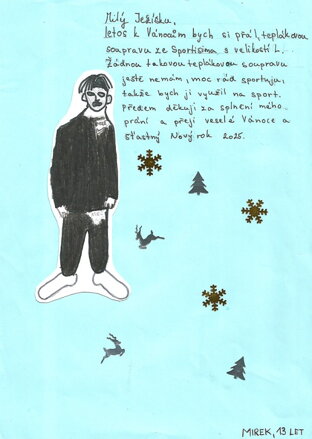 Milý Ježíšku,
letos k Vánocům bych si přál, teplákovou
soupravu ze Sportisima s velikostí L.
Žádnou takovou teplákovou soupravu
ještě nemám, moc rád sportuju,
takže bych ji využil na sport.
Předem děkuji za splnění mého
přání a přeji veselé Vánoce a
šťastný Nový rok 2025.
MIREK, 13 LET